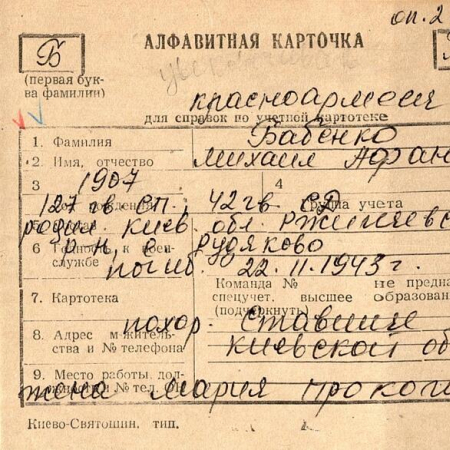 оп. 2
Б
АЛФАВИТНАЯ КАРТОЧКА
(первая бук-
ва фамилии)
красноармеец
для справок по учетной картотеке
1. Фамилия Бабенко
2. Имя, отчество Михаил Афан
3 1907 4
127 гв. СП, 42 гв. СД
Группа учета
родин. Киев. обл. Ржищевс
6 р-н, с. Рудяково
службе погиб. 22.11.1943 г.
Команда № не предна
7. Картотека спецучет, высшее образова
(подчеркнуть)
похор. Ставище
8. Адрес м-житель-
ства и № телефона Киевской об
9. Место работы, дол-
жена Мария Прокоп
Киево-Святошин. тип.